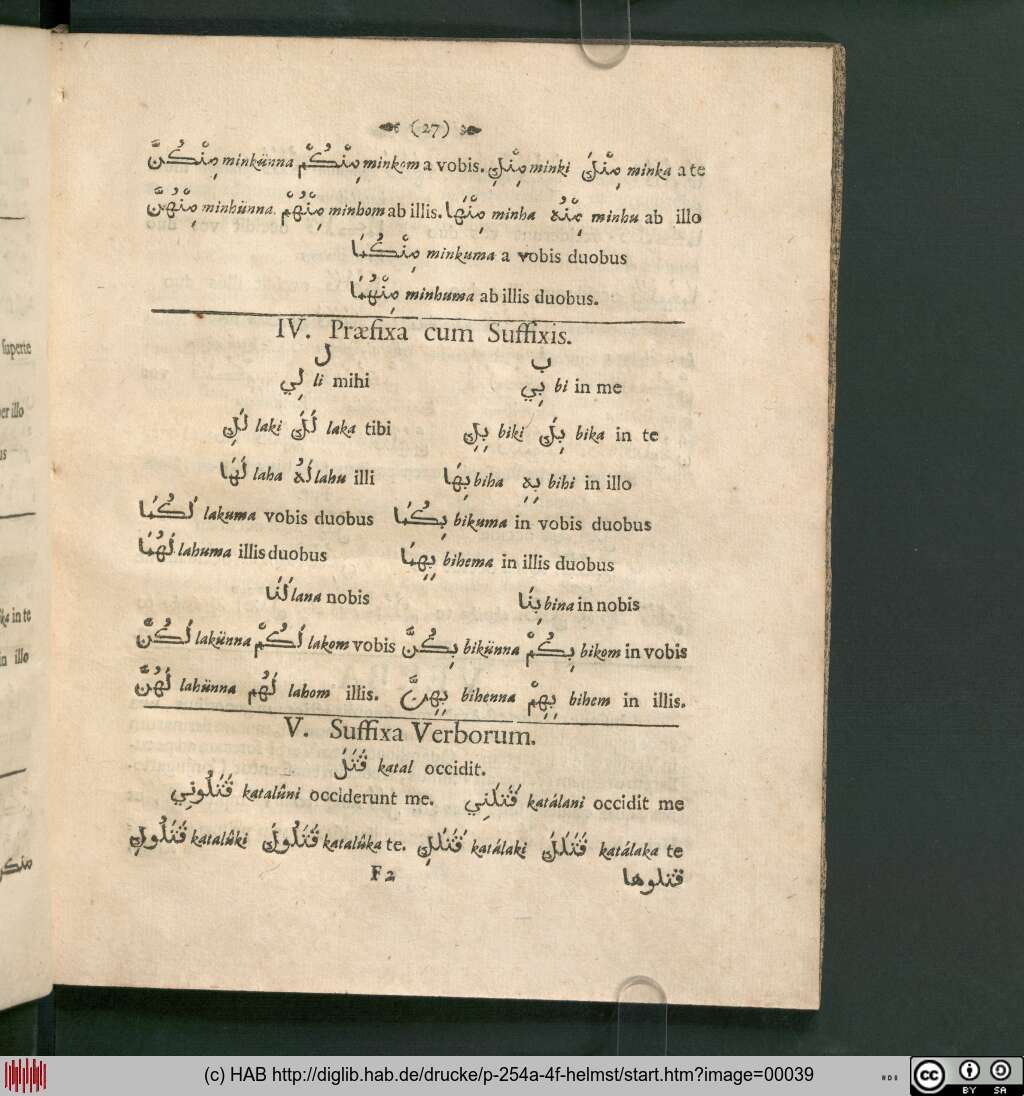 (27)
مِنْكُنَّ minkünna مِنْكُمْ minkom a vobis. مِنْكِ minki مِنْكَ minka a te
مِنْهُنَّ minhünna. مِنْهُمْ minhom ab illis. مِنْهَا minha مِنْهُ minhu ab illo
مِنْكُمَا minkuma a vobis duobus
مِنْهُمَا minhuma ab illis duobus.
IV. Præfixa cum Suffixis.
ل ب
لِي li mihi بِي bi in me
لَكِ laki لَكَ laka tibi بِكِ biki بِكَ bika in te
لَهَا laha لَهُ lahu illi بِهَا biha بِهِ bihi in illo
لَكُمَا lakuma vobis duobus بِكُمَا bikuma in vobis duobus
لَهُمَا lahuma illis duobus بِهِمَا bihema in illis duobus
لَنَا lana nobis بِنَا bina in nobis
لَكُنَّ lakünna لَكُمْ lakom vobis بِكُنَّ bikünna بِكُمْ bikom in vobis
لَهُنَّ lahünna لَهُم lahom illis. بِهِنَّ bihenna بِهِمْ bihem in illis.
V. Suffixa Verborum.
قَتَلَ katal occidit.
قَتَلُونِي katalûni occiderunt me. قَتَلَنِي katálani occidit me
قَتَلُوكِ katalûki قَتَلُوكَ katalûka te. قَتَلَكِ katálaki قَتَلَكَ katálaka te
F 2 قتلوها
superte
er illo
us
ka in te
in illo
منكر
(c) HAB http://diglib.hab.de/drucke/p-254a-4f-helmst/start.htm?image=00039
HAB
cc BY SA